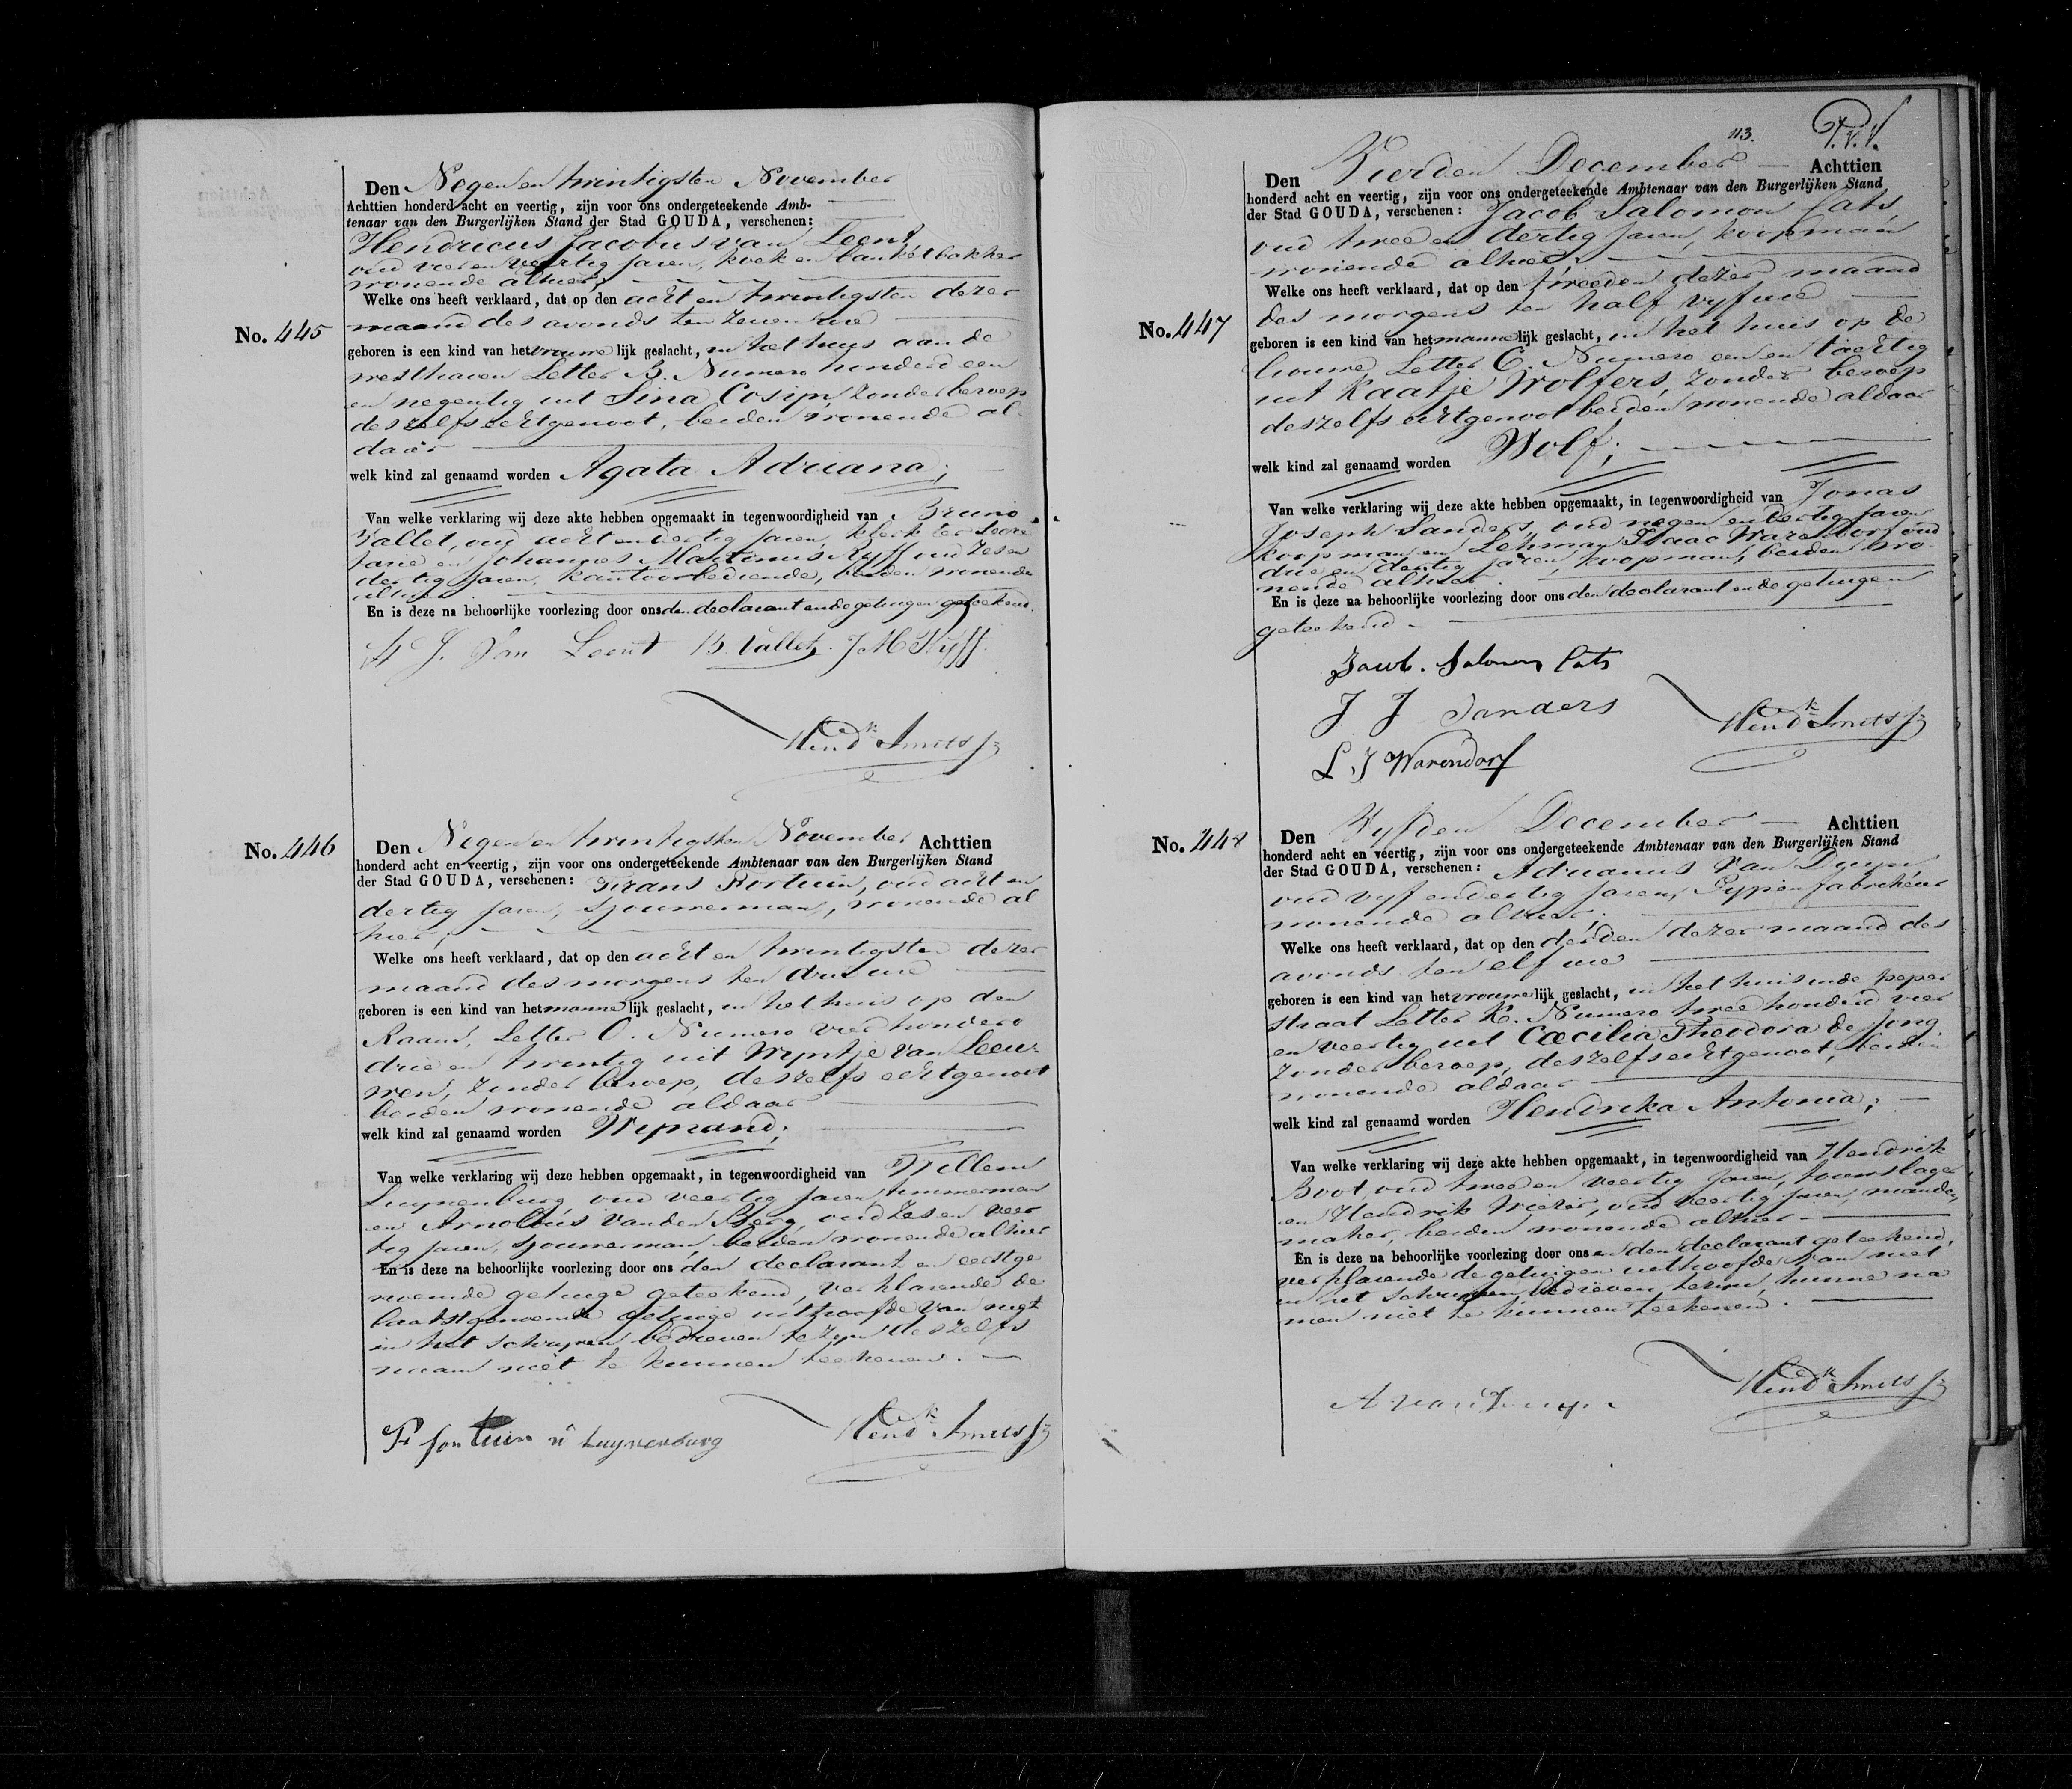 Den Negen en twintigsten November
Achttien honderd acht en veertig, zijn voor ons ondergeteekende Amb-
tenaar van den Burgerlijken Stand der Stad GOUDA, verschenen:
Hendricus Jacobus van Leent
oud vier en veertig Jaren, koek en banketbakker
wonende alhier;
Welke ons heeft verklaard, dat op den acht en twintigsten dezer
No. 445
maand des avonds ten zeven ure
geboren is een kind van het vrouwelijk geslacht, in het huis aan de
westhaven Letter B. Numero honderd een
en negentig uit Sina Cosijn, zonder beroep
deszelfs echtgenoot, beiden wonende al-
daar
welk kind zal genaamd worden Agata Adriana;
Van welke verklaring wij deze akte hebben opgemaakt in tegenwoordigheid van Bruno
Vallet, oud acht en dertig Jaren, klerk ter Secre
tarie en Johannes Martinus Ryff oud zes en
dertig Jaren, kantoorbediende, beiden wonende
alhier
En is deze na behoorlijke voorlezing door ons den declarant en de getuigen geteekend.
H J. Van Leent B. Vallet. J M Ryff.
Hendk Smits Jz
No. 446
Den Negen en twintigsten November Achttien
honderd acht en veertig, zijn voor ons ondergeteekende Ambtenaar van den Burgerlijken Stand
der Stad GOUDA, verschenen: Frans Fortuin, oud acht en
dertig Jaren, Sjouwerman, wonende al
hier;
Welke ons heeft verklaard, dat op den acht en twintigsten dezer
maand des morgens ten drie ure
geboren is een kind van het mannelijk geslacht, in het huis op den
Raam, Letter O. Numero vier honderd
drie en twintig uit Wyntje Van Leeu-
wen, zonder beroep, deszelfs echtgenoot
beiden wonende aldaar
welk kind zal genaamd worden Wynand;
Van welke verklaring wij deze hebben opgemaakt, in tegenwoordigheid van Willem
Luynenburg oud veertig Jaren, timmerman
en Arnoldus van den Berg, oud zes en veer
tig Jaren, sjouwerman, beiden wonende alhier
En is deze na behoorlijke voorlezing door ons den declarant en eerstge
noemde getuige geteekend, verklarende de
laatstgenoemde getuige uithoofde van niet
in het schryven bedreven te zyn deszelfs
naam niet te kunnen teekenen.
Fr fortuin W Luynenburg
Hendk Smits Jz
113.
Den Vierden December Achttien
honderd acht en veertig, zijn voor ons ondergeteekende Ambtenaar van den Burgerlijken Stand
der Stad GOUDA, verschenen: Jacob Salomon Cats,
oud twee en dertig Jaren, koopman
wonende alhier;
Welke ons heeft verklaard, dat op den tweeden dezer maand
No. 447
des morgens ten half vyf ure
geboren is een kind van het mannelijk geslacht, in het huis op de
Gouwe Letter C. Numero een en tachtig
uit Kaatje Wolfers, zonder beroep
deszelfs echtgenoot beiden wonende aldaar
welk kind zal genaamd worden Wolf;
Van welke verklaring wij deze akte hebben opgemaakt, in tegenwoordigheid van Jonas
Joseph Sanders, oud negen en dertig Jaren
koopman, en Lehman Isaac Warendorf oud
drie en dertig Jaren, koopman, beiden wo-
nende alhier.
En is deze na behoorlijke voorlezing door ons den declarant en de getuigen
geteekend.
Jacob. Salomon Cats
J J Sanders
Hendk Smits Jz
L. J Warendorf
No. 448
Den Vyfden December Achttien
honderd acht en veertig, zijn voor ons ondergeteekende Ambtenaar van den Burgerlijken Stand
der Stad GOUDA, verschenen: Adrianus Van Duyn,
oud vyf en dertig Jaren, Pypenfabrikeur
wonende alhier;
Welke ons heeft verklaard, dat op den derden dezer maand des
avonds ten elf ure
geboren is een kind van het vrouwelijk geslacht, in het huis in de peper
straat Letter K. Numero twee honderd vier
en veertig uit Cœcilia Theodora de Jong
zonder beroep, deszelfs echtgenoot, beiden
wonende aldaar
welk kind zal genaamd worden Hendrika Antonia;
Van welke verklaring wij deze akte hebben opgemaakt, in tegenwoordigheid van Hendrik
Boot, oud twee en veertig Jaren, touwslager
en Hendrik oud veertig Jaren, manden
maker, beiden wonende alhier
En is deze na behoorlijke voorlezing door ons en den declarant geteekend,
verklarende de getuigen uithoofde van niet
in het schryven bedreven te zyn, hunne na
men niet te kunnen teekenen.
Hendk Smits Jz
A van Duyn